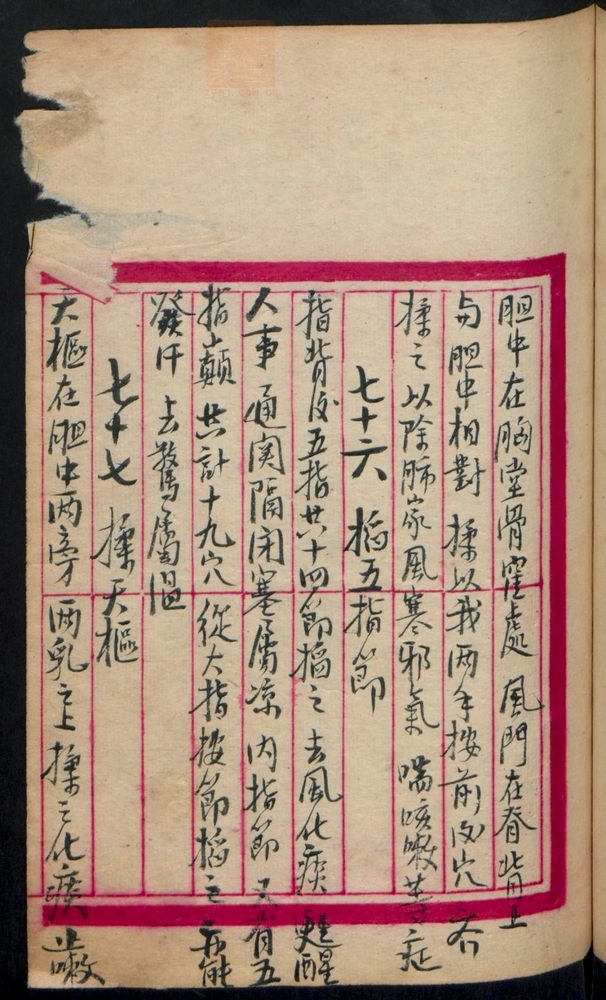 胆中在胸堂骨窪處 風門在脊背上
与胆中相對 揉以我两手按前后穴 齐
揉之 以除肺家風寒邪氣 喘咳嗽等症
七十六 掐五指節
指背後五指共十四節掐之 去風化痰 甦醒
人事 通関隔闭塞屬凉 内指節 又有五
指巔 共計十九穴 從大指按節掐之 亦能
發汗 去驚屬温
七十七 揉天樞
天樞在胆中两旁 两乳之上 揉之化痰 止嗽